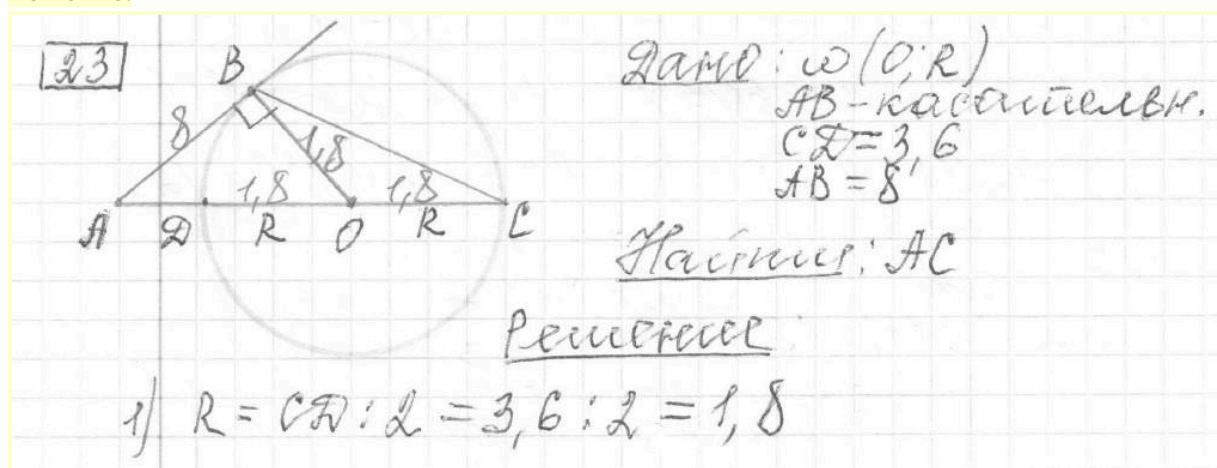 23
B
8
1,8
1,8
1,8
A
D
R
O
R
C
Дано: ω(O; R)
AB - касательн.
CD = 3,6
AB = 8
Найти: AC
Решение
1) R = CD : 2 = 3,6 : 2 = 1,8